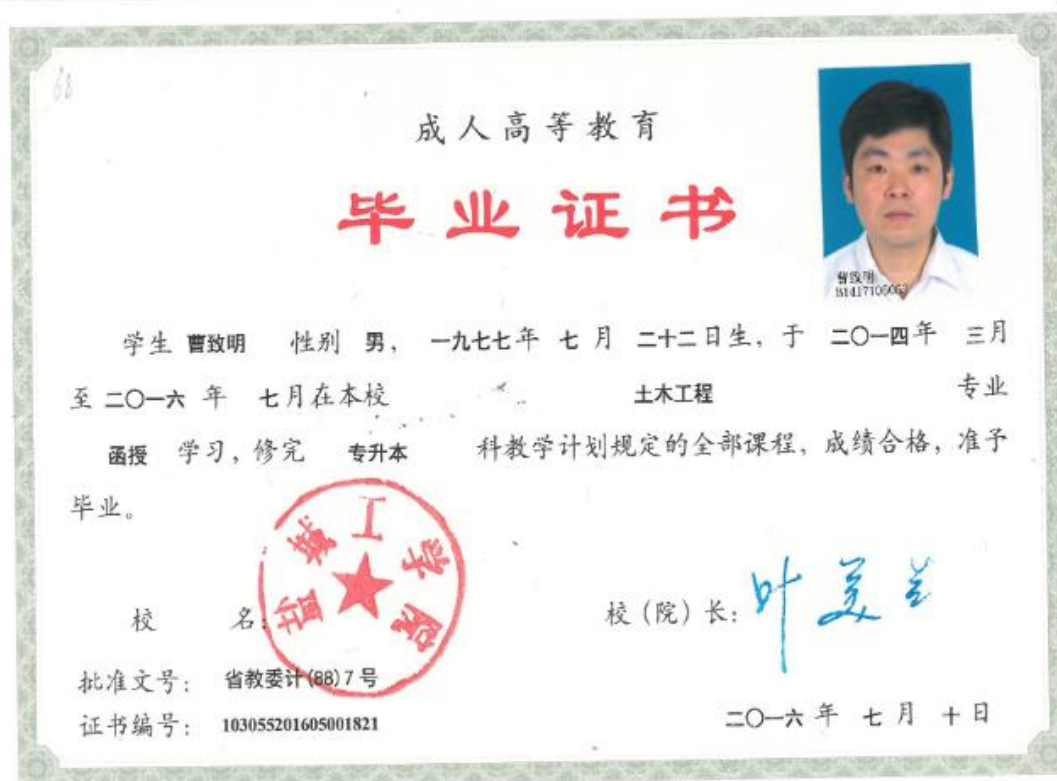 68
成人高等教育
毕业证书
曹致明
学生 曹致明 性别 男， 一九七七年 七 月 二十二日生，于 二〇一四年 三月
至 二〇一六 年 七月在本校 土木工程 专业
函授 学习，修完 专升本 科教学计划规定的全部课程，成绩合格，准予
毕业。
盐城工学院
校 名：
校（院）长：叶美兰
批准文号： 省教委计(88)7号
证书编号： 103055201605001821
二〇一六 年 七 月 十 日